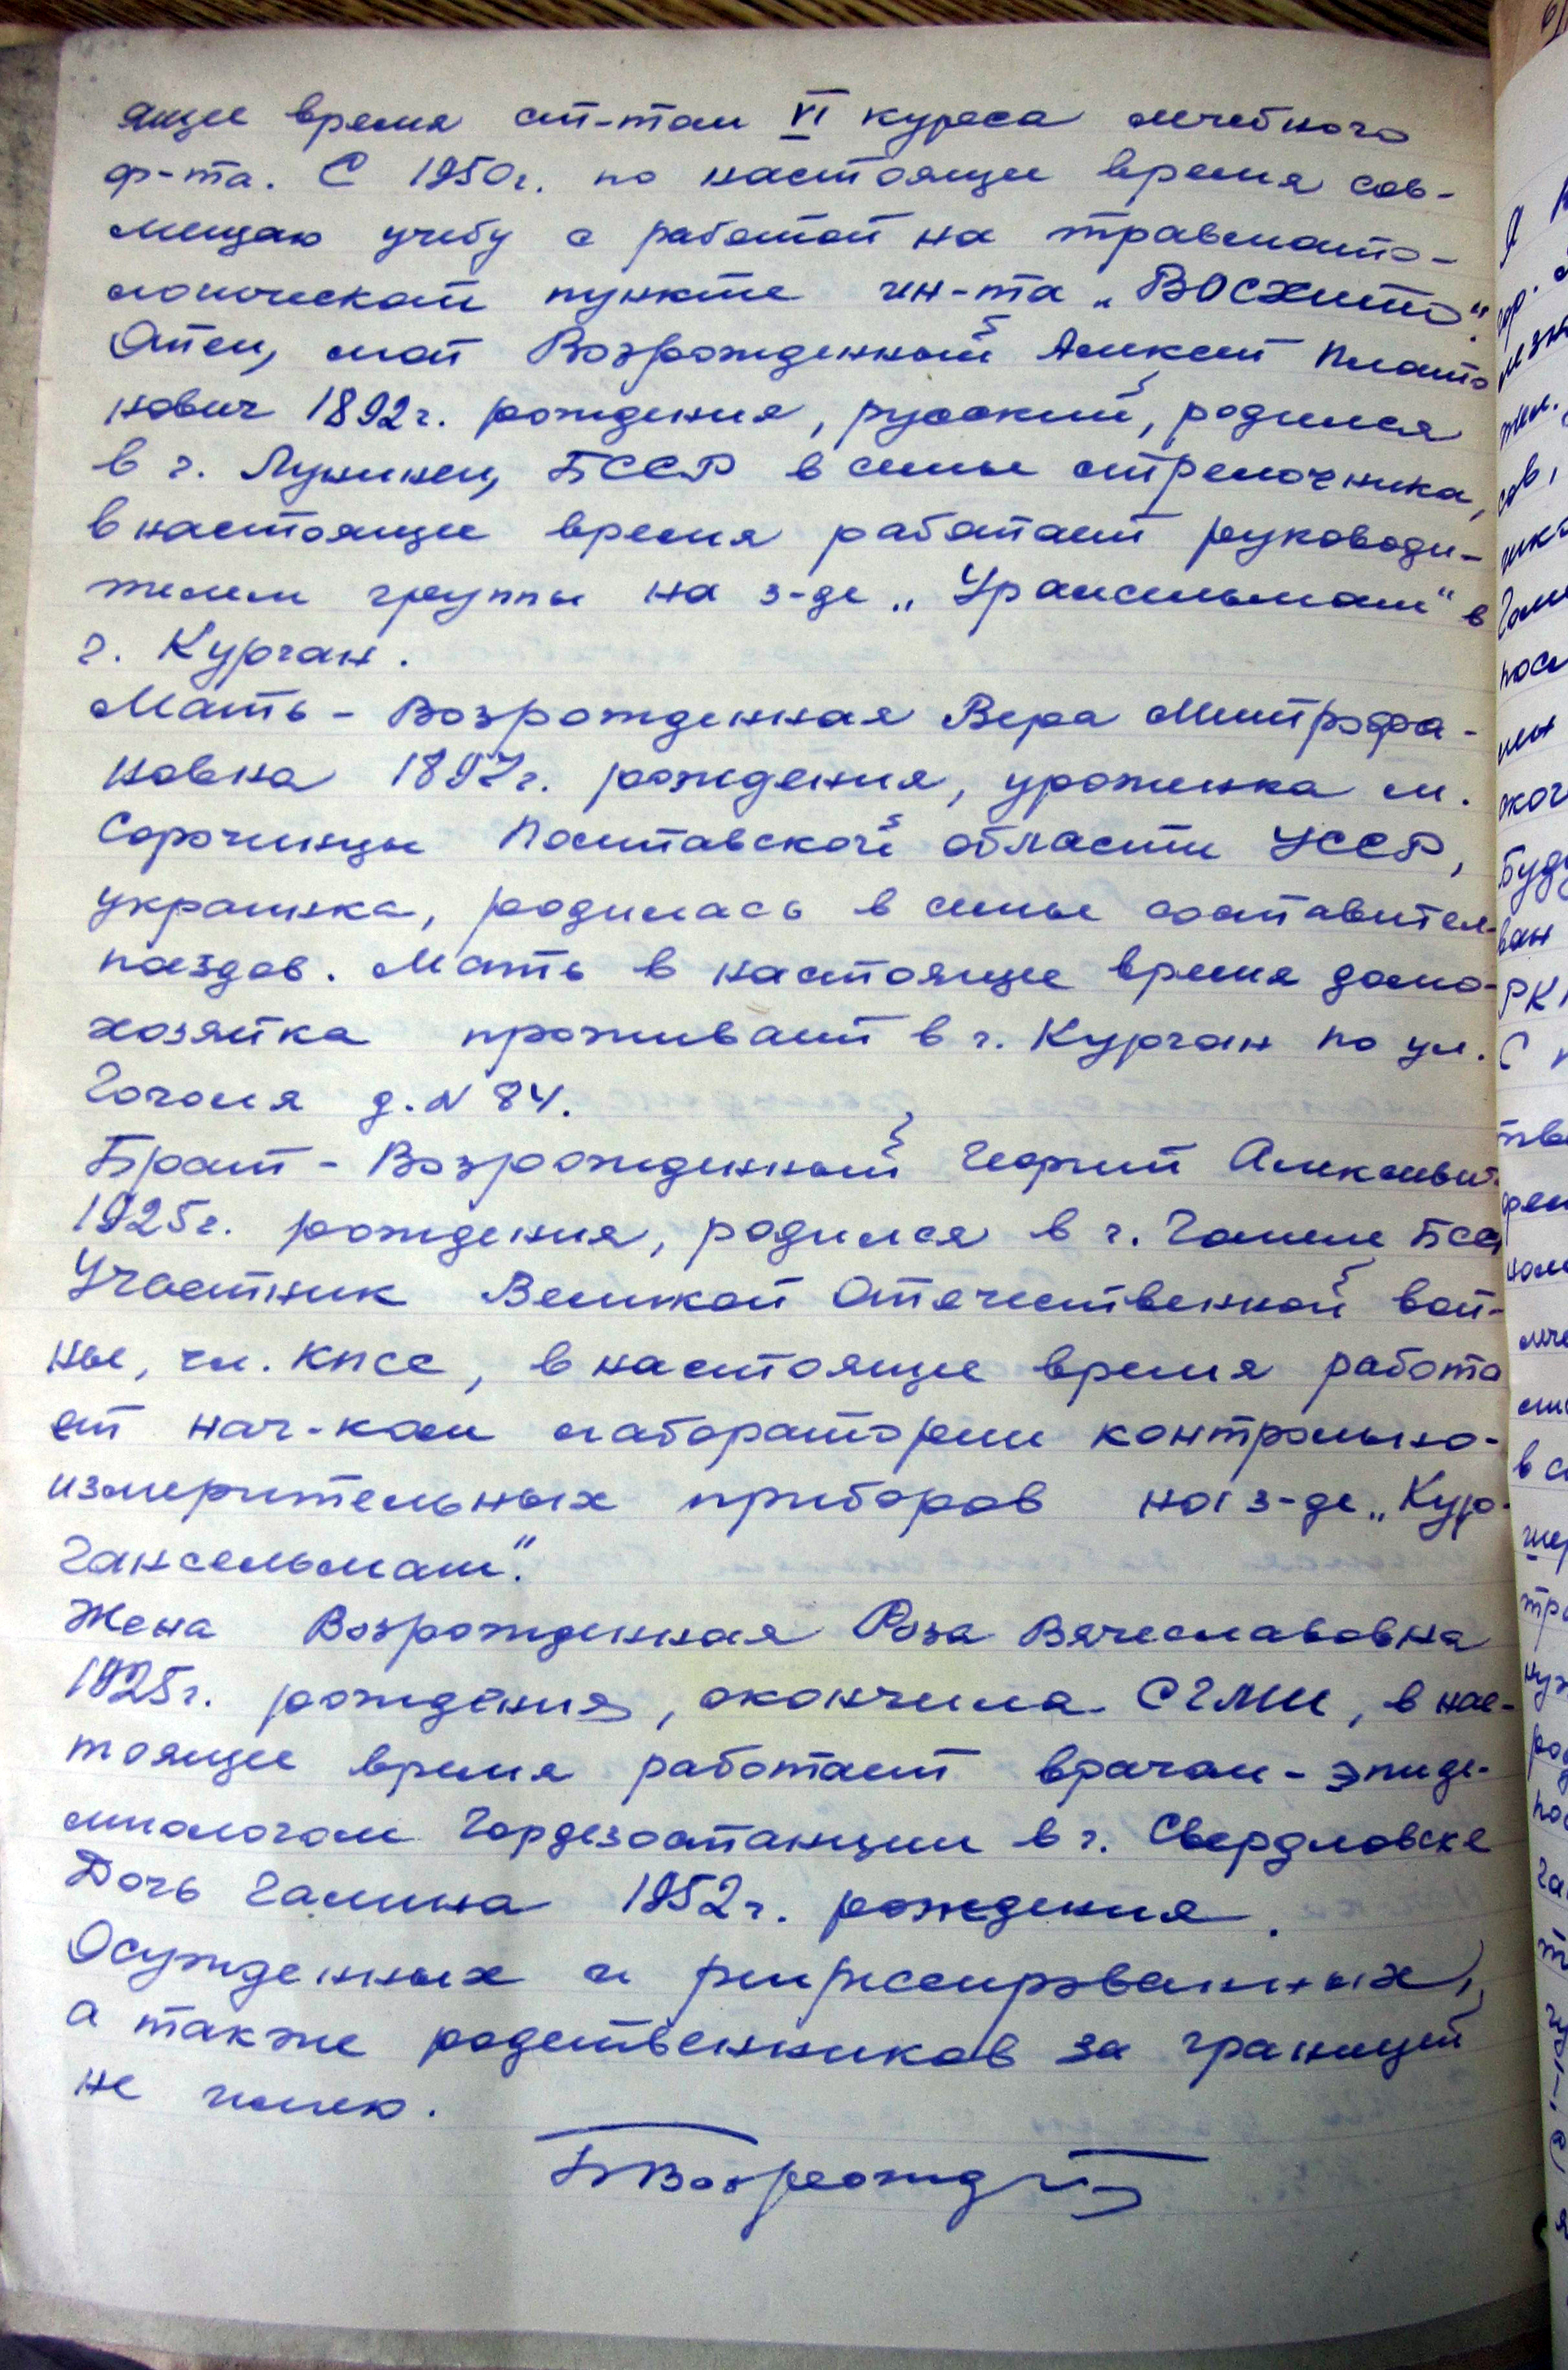 ящее время ст-том VI курса лечебного
ф-та. С 1950г. по настоящее время сов-
мещаю учебу с работой на травмато-
логическом пункте ин-та „ВОСХИТО“.
Отец, мой Возрожденный Алексей Плато
нович 1892г. рождения, русский, родился
в г. Лунинец, БССР в семье стрелочника,
в настоящее время работает руководи-
телем группы на з-де „Уралсельмаш“ в
г. Курган.
Мать - Возрожденная Вера Митрофа-
новна 1897г. рождения, уроженка м.
Сорочинцы Полтавской области УССР,
украинка, родилась в семье составител
поездов. Мать в настоящее время домо-
хозяйка проживает в г. Курган по ул.
Гоголя д. N 84.
Брат - Возрожденный Георгий Алексеевич
1925г. рождения, родился в г. Гомеле БСС
Участник Великой Отечественной вой-
ны, чл. КПСС, в настоящее время работа
ет нач-ком лаборатории контрольно-
измерительных приборов на з-де „Кур-
гансельмаш“.
Жена Возрожденная Роза Вячеславовна
1925г. рождения, окончила СГМИ, в нас-
тоящее время работает врачом-эпиде-
миологом Гордезостанции в г. Свердловске
Дочь Галина 1952г. рождения.
Осужденных и репрессированных,
а также родственников за границей
не имею.
БВозрожд